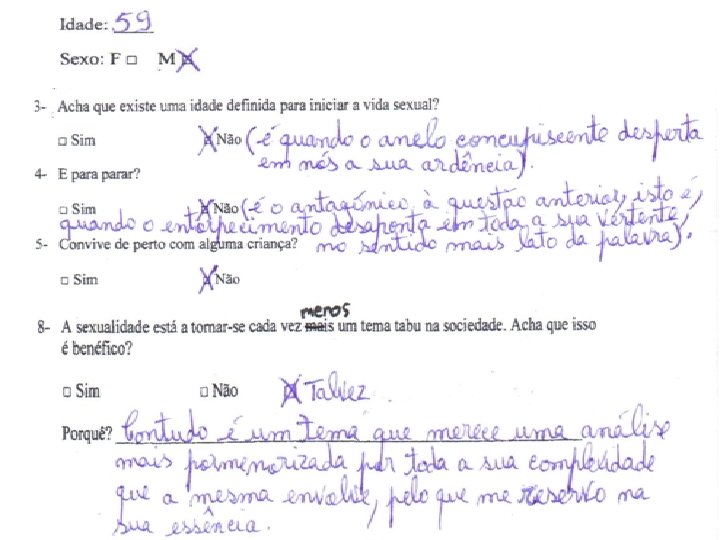 Idade: 59
Sexo: F □ M ☒
3- Acha que existe uma idade definida para iniciar a vida sexual?
□ Sim ☒ Não (é quando o anelo concupiscente desperta
em nós a sua ardência).
4- E para parar?
□ Sim ☒ Não (é o antagónico à questão anterior, isto é,
quando o entorpecimento desaponta em toda a sua vertente,
5- Convive de perto com alguma criança? no sentido mais lato da palavra).
□ Sim ☒ Não
menos
8- A sexualidade está a tornar-se cada vez mais um tema tabu na sociedade. Acha que isso
é benéfico?
□ Sim □ Não ☒ Talvez
Porquê? Contudo é um tema que merece uma análise
mais pormenorizada por toda a sua complexidade
que a mesma envolve, pelo que me reservo na
sua essência.